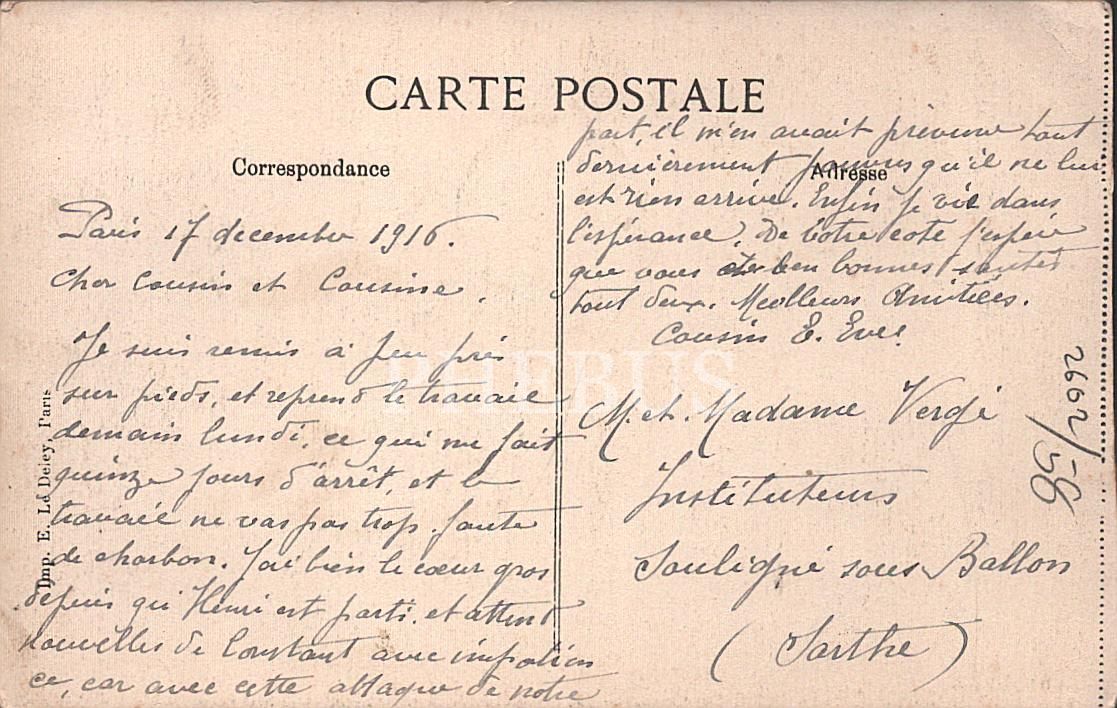 CARTE POSTALE
Correspondance
Paris 17 decembre 1916.
Cher Cousin et Cousine,
Je suis remis à peu près
sur pieds, et reprend le travail
demain lundi, ce qui me fait
quinze jours d'arrêt, et le
travail ne vas pas trop. faute
de charbon. J'ai bien le cœur gros
depuis qu'Henri est parti. et attent
nouvelles de Constant avec impatien
ce, car avec cette attaque de notre
part, il m'en avait prévenu tout
dernièrement qu'il ne lui
Adresse
est rien arrivé. Enfin je vie dans
l'espérance. De votre coté j'espère
que vous bonnes santés
tout deux. Meilleurs Amitiées.
Cousin E. Eve
PHEBUS
M. et Madame Vergé
Instituteurs
Souligné sous Ballon
(Sarthe)
2662/58
Imp. E. Le Deley, Paris